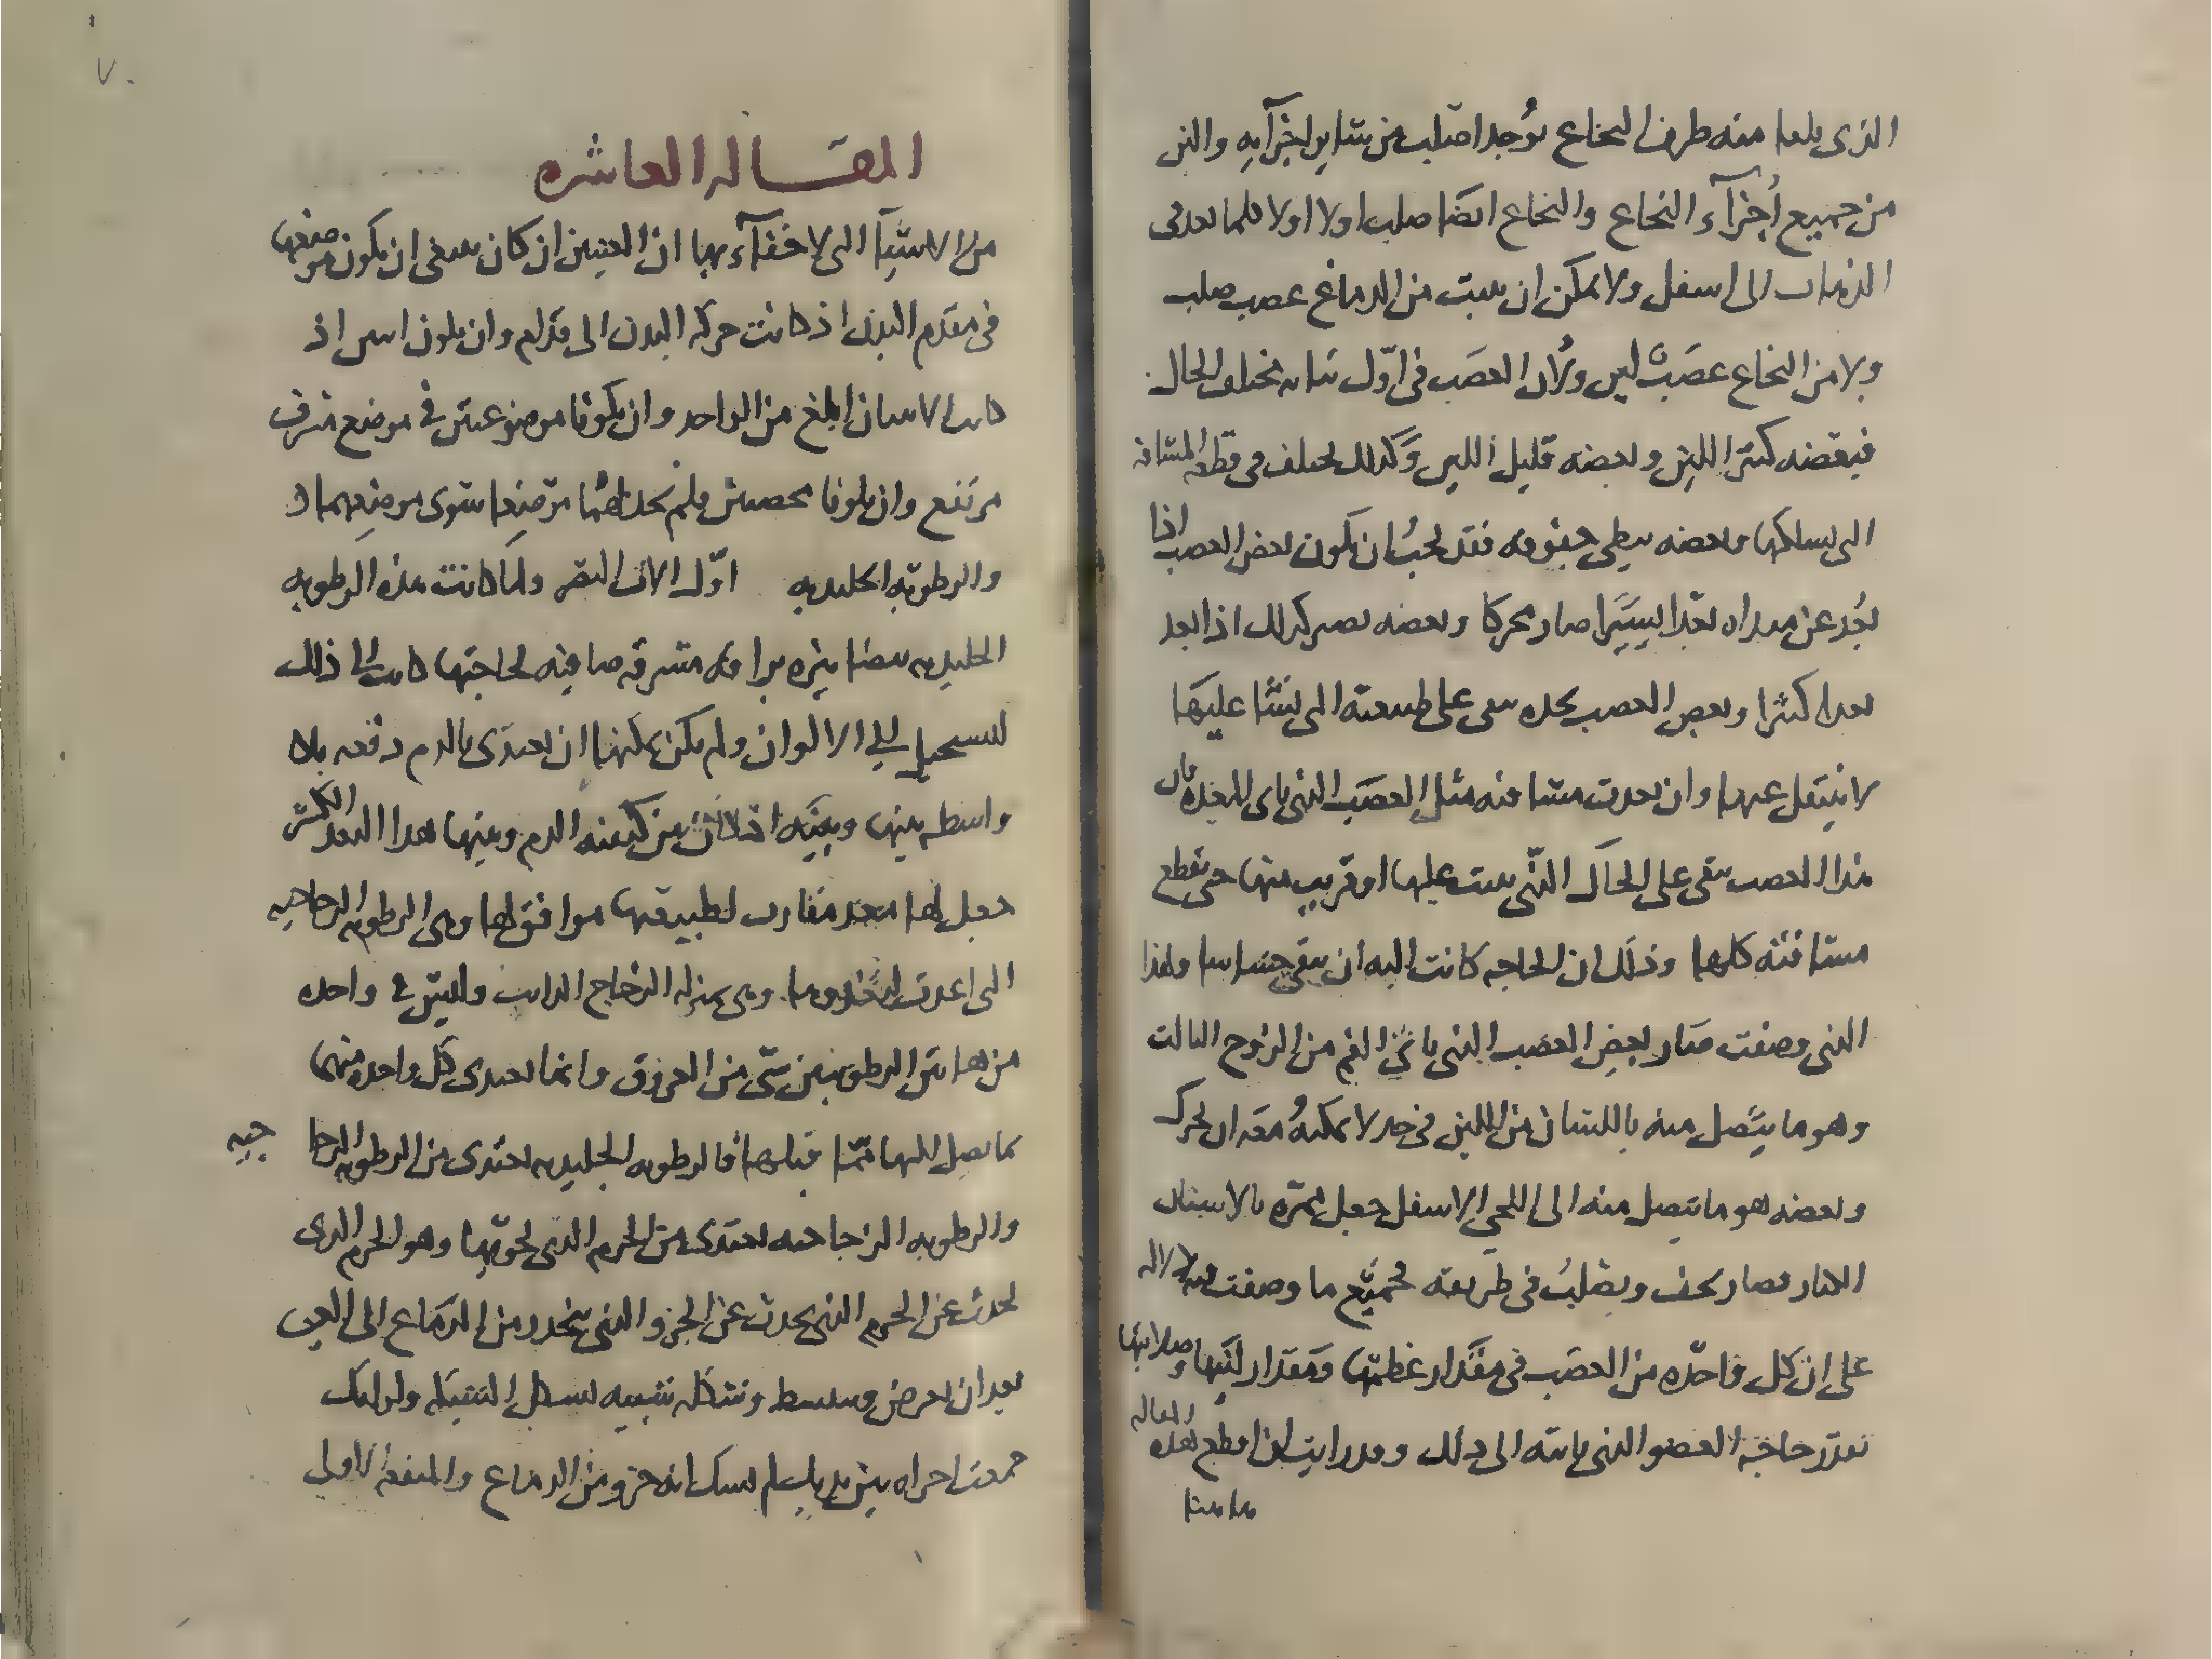 الذى يلقا منه طرف النخاع يوجد اصلب من ساير اجزآيه والين
من جميع أجزآء النخاع والنخاع ايضا صلب اولا اولا كلما بعد فى
الذهاب الى اسفل ولا يمكن ان ينبت من الدماغ عصب صلب
ولا من النخاع عصب لين ولان العصب فى اول نباته مختلف الحال
فبعضه كثير اللين وبعضه قليل اللين وكذلك يختلف فى قطعه المسافه
التى يسلكها وبعضه يبطى جفوفه فقد يجب ان يكون بعض العصب اذا
بعد عن مبداه بعدا يسيرا صار محركا وبعضه يصير كذلك اذا بعد
بعدا كثيرا وبعض العصب تجده يبقى على طبيعته التى نشا عليها
لا ينتقل عنها وان بعدت مسافته مثل العصب الذى ياتى المعده فان
هذا العصب يبقى على الحال التى ينبت عليها او قريب منها حتى يقطع
مسافته كلها وذلك ان الحاجه كانت اليه ان يبقى حساسا ولهذا
الذى وصفت صار بعض العصب الذى ياتى الفم من الزوج الثالث
وهو ما يتصل منه باللسان من اللين فى حد لا يمكنه معه ان يحرك
وبعضه هو ما يتصل منه الى اللحى الاسفل جعل ممره بالاسنان
الكبار فصار يجف ويصلب فى طريقه فجميع ما وصفت فيه دلاله
على ان كل واحده من العصب فى مقدار عظمها ومقدار لينها وصلابتها
بقدر حاجه العضو الذى ياتيه الى ذلك وقد رايت ان اقطع هذه المقاله
هاهنا
٧٠
المقاله العاشره
من الاشيآ التى لا خفآء بها ان العينين ان كان ينبغى ان يكون موضعها
فى مقدم البدن اذ كانت حركه البدن الى قدام وان يكون اثنين اذ
كانت الاثنان ابلغ من الواحد وان يكونا موضوعتين فى موضع مشرف
مرتفع وان يكونا محصنين فلم نجد لهما موضعا سوى موضعهما
والرطوبه الجليديه اول الات البصر ولما كانت هذه الرطوبه
الجليديه بيضا نيره براقه مشرقه صافيه لحاجتها كانت الى ذلك
لتستحيل الى الالوان ولم يكن يمكنها ان تغتذى بالدم دفعه بلا
واسطه بينها وبينه اذ كان بين كيفيه الدم وبينها هذا البعد الكثير
جعل لها غذا مقارب لطبيعتها موافق لها وهى الرطوبه الزجاجيه
التى اعدت لتغذوها وهى بمنزله الزجاج الذايب وليس فى واحده
من هاتين الرطوبتين شى من العروق وانما تغتذى كل واحده منهما
بما يصل اليها مما قبلها فالرطوبه الجليديه تغتذى من الرطوبه الزجاجيه
والرطوبه الزجاجيه تغتذى من الجرم الذى يحويها وهو الجرم الذى
يحدث عن الجرم الذى يحدث عن الجزو الذى ينحدر من الدماغ الى العين
بعد ان يعرض وينبسط وشكله شبيه بشكل الشبكه ولذلك
جمعت اجزاه بين يديك لم تشك انه جزو من الدماغ والمنفعه الاولى